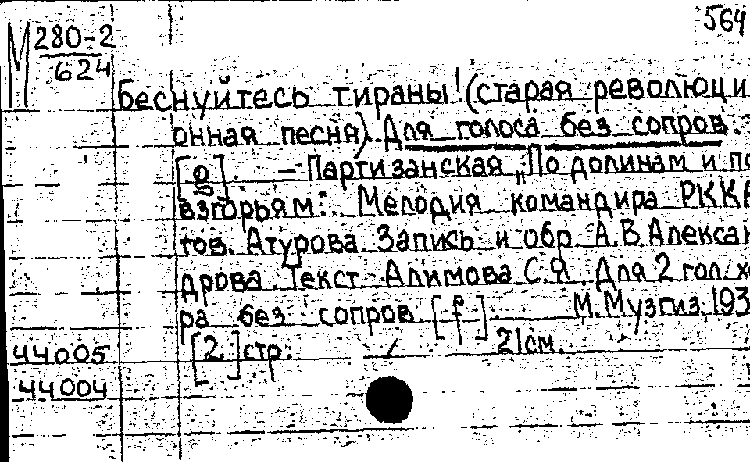 564
М 280-2
624
Беснуйтесь тираны! (старая революци
онная песня). Для голоса без сопров.
[g]. — Партизанская „По долинам и по
взгорьям". Мелодия командира РККА
тов. Атурова. Запись и обр. А.В. Алексан
дрова. Текст Алимова С.Я. Для 2 гол. хо
ра без сопров. [f] М. Музгиз, 193
44005 [2] стр. 21см.
44004